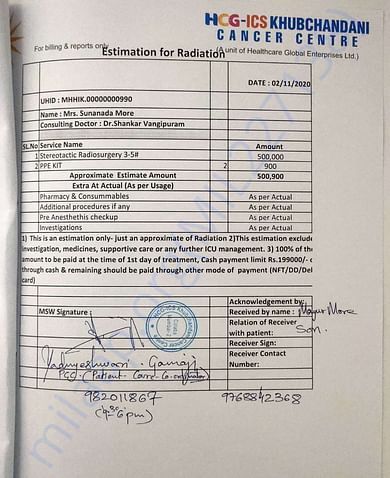 HCG-ICS KHUBCHANDANI
CANCER CENTRE
(A unit of Healthcare Global Enterprises Ltd.)
For billing & reports only
Estimation for Radiation
DATE : 02/11/2020
UHID : MHHIK.00000000990
Name : Mrs. Sunanada More
Consulting Doctor : Dr.Shankar Vangipuram
SL.No Service Name Amount
1 Stereotactic Radiosurgery 3-5# 500,000
2 PPE KIT 2 900
Approximate Estimate Amount 500,900
Extra At Actual (As per Usage)
Pharmacy & Consummables As per Actual
Additional procedures if any As per Actual
Pre Anesthethis checkup As per Actual
Investigations As per Actual
1) This is an estimation only- just an approximate of Radiation 2)This estimation exclude
investigation, medicines, supportive care or any further ICU management. 3) 100% of the
amount to be paid at the time of 1st day of treatment, Cash payment limit Rs.199000/-
through cash & remaining should be paid through other mode of payment (NFT/DD/Del
card)
MSW Signature :
Acknowledgement by:
Received by name : Mayur More
Relation of Receiver
with patient: Son.
Receiver Sign:
Receiver Contact
Number:
PCC. (Patient Care Co-ordinator)
982011867
(9-30 6 pm)
9768842368